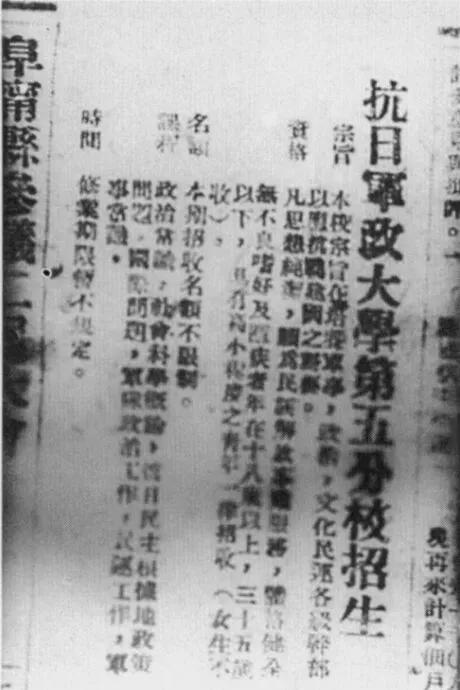 抗日軍政大學第五分校招生
宗旨 本校宗旨在培養軍事，政治，文化民運各級幹部
以堅抗戰建國之
資格 凡思想純潔，願爲民族解放事業服務，體格健全
無不良嗜好及疾者年在十八歲以上，三十五歲
以下，具有高小程度之青年一律招收（女生不
收）。
名額 本期招收名額不限制。
課程 政治常識，社會科學概論，抗日民主根據地政策
問題，國際問題，軍隊政治工作，民運工作，軍
事常識。
時間 修業期限暫不規定。
阜甯縣參議
現再來計算佃戶